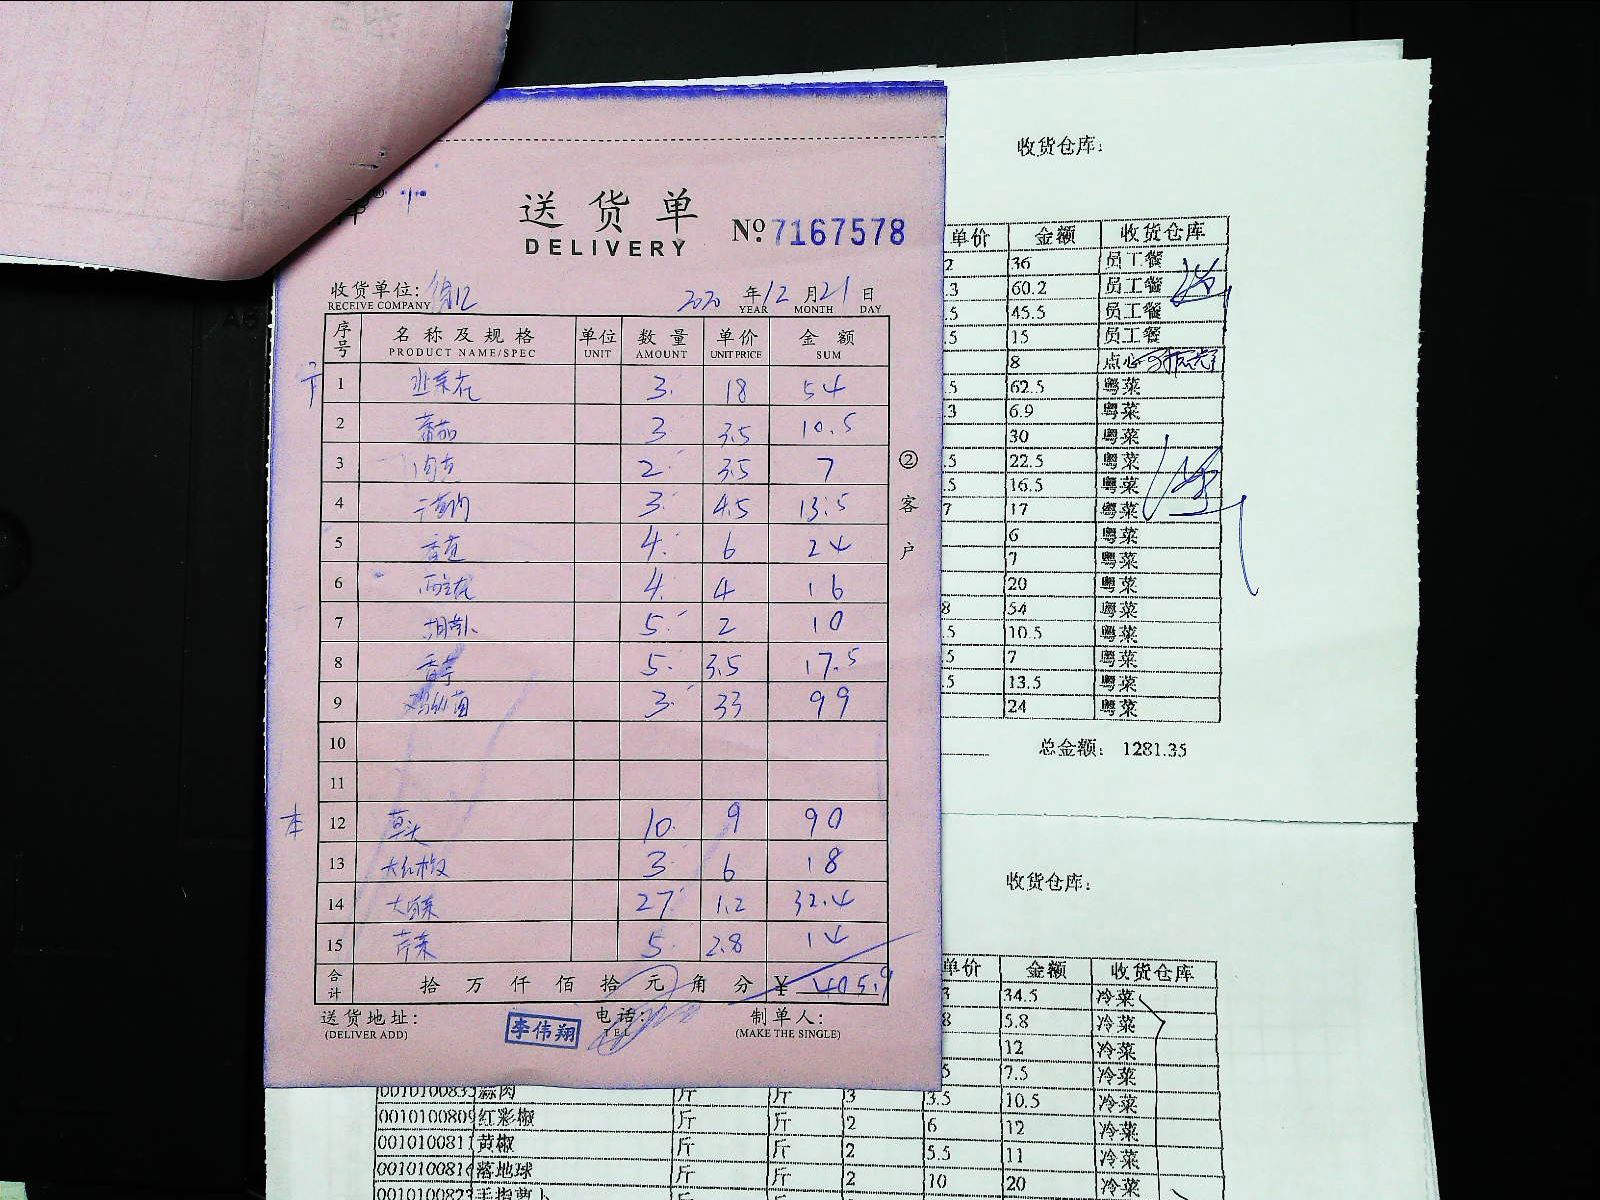 送货单
DELIVERY
№ 7167578
收货单位:
RECEIVE COMPANY
2020 年 12 月 21 日
YEAR MONTH DAY
序号 名称及规格 单位 数量 单价 金额
PRODUCT NAME/SPEC UNIT AMOUNT UNIT PRICE SUM
1 韭菜花 3 18 54
2 番茄 3 3.5 10.5
3 2 3.5 7
4 3 4.5 13.5
5 4 6 24
6 西兰花 4 4 16
7 胡萝卜 5 2 10
8 香芋 5 3.5 17.5
9 鸡枞菌 3 33 99
10
11
本 12 草头 10 9 90
13 大红椒 3 6 18
14 大白菜 27 1.2 32.4
15 芹菜 5 2.8 14
合计 拾 万 仟 佰 拾 元 角 分 ¥ 405.9
送货地址: 电话: 制单人:
(DELIVER ADD) TEL (MAKE THE SINGLE)
李伟翔
② 客户
收货仓库:
单价 金额 收货仓库
2 36 员工餐
.3 60.2 员工餐
.5 45.5 员工餐
.5 15 员工餐
8 点心
.5 62.5 粤菜
.3 6.9 粤菜
30 粤菜
.5 22.5 粤菜
.5 16.5 粤菜
7 17 粤菜
6 粤菜
7 粤菜
20 粤菜
8 54 粤菜
.5 10.5 粤菜
.5 7 粤菜
.5 13.5 粤菜
24 粤菜
总金额: 1281.35
收货仓库:
单价 金额 收货仓库
3 34.5 冷菜
8 5.8 冷菜
12 冷菜
5 7.5 冷菜
0010100835 蒜肉 斤 斤 3 3.5 10.5 冷菜
0010100809 红彩椒 斤 斤 2 6 12 冷菜
0010100811 黄椒 斤 斤 2 5.5 11 冷菜
0010100814 落地球 斤 斤 2 10 20 冷菜
0010100823 手指萝卜